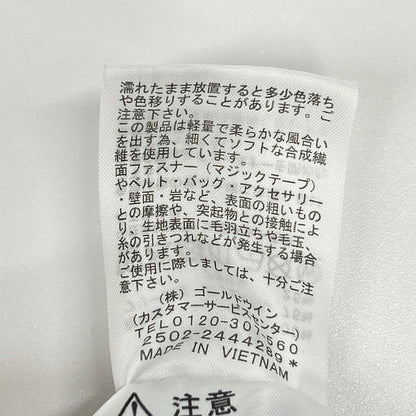 濡れたまま放置すると多少色落ち
や色移りすることがあります。ご
注意下さい。
この製品は軽量で柔らかな風合い
を出す為、細くてソフトな合成繊
維を使用しています。
面ファスナー（マジックテープ）
やベルト・バッグ・アクセサリー
・壁面・岩など、表面の粗いもの
との摩擦や、突起物との接触によ
り、生地表面に毛羽立ちや毛玉、
糸の引きつれなどが発生する場合
があります。
ご使用に際しましては、十分ご注
意下さい。
（株）ゴールドウイン
（カスタマーサービスセンター）
TEL0120-307-560
2502-2444289*
MADE IN VIETNAM
注意